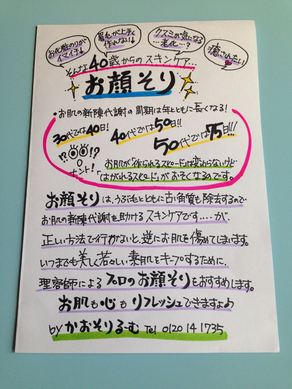 お化粧のりがイマイチ
眉毛が上手く作れない
クスミが気になる…老化…?
癒されたい
そんな40歳からのスキンケア…
お顔そり
・お肌の新陳代謝の周期は年とともに長くなる!
30代では40日!
40代では50日!!
50代では75日!!!
!?
!?
ナント!
お肌が作られるスピードは変わらないけど
「はがれるスピード」がおそくなるのです。
お顔そりは、うぶ毛とともに古い角質も除去するので
お肌の新陳代謝を助けるスキンケアです……が、
正しい方法で行わないと、逆にお肌を傷めてしまいます。
いつまでも美しく若々しい素肌をキープするために、
理容師によるプロのお顔そりをおすすめします。
お肌も心もリフレッシュできますよ♪
by かおそりるーむ Tel 0120 14 1735